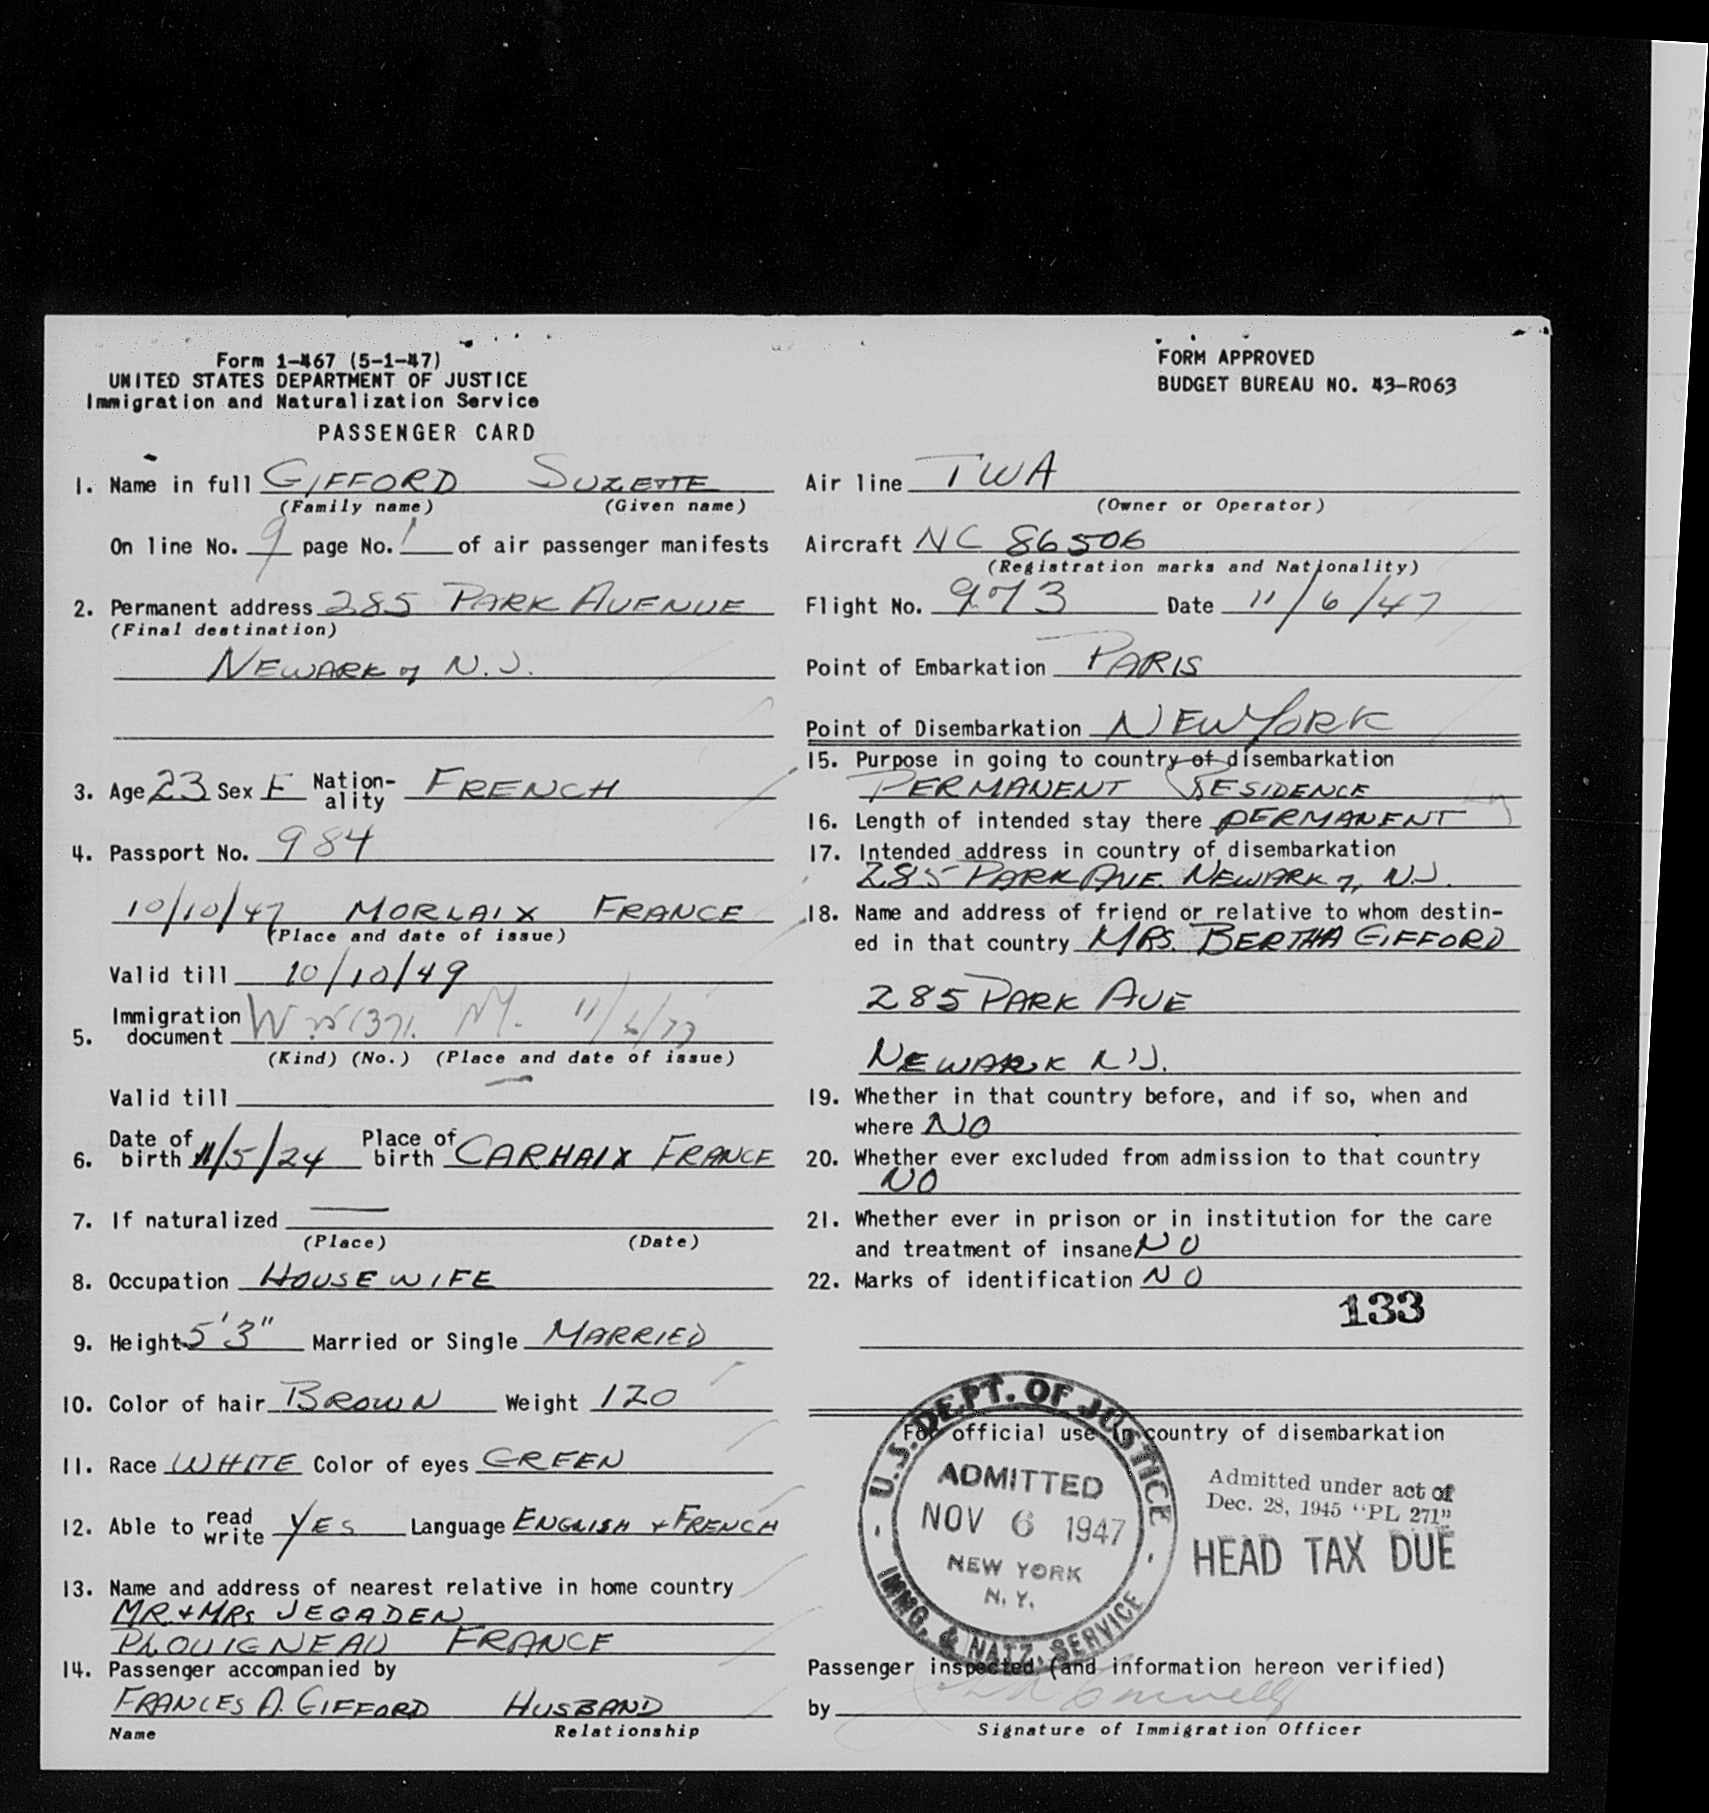 Form 1-467 (5-1-47)
UNITED STATES DEPARTMENT OF JUSTICE
Immigration and Naturalization Service
PASSENGER CARD
FORM APPROVED
BUDGET BUREAU NO. 43-R063
1. Name in full GIFFORD SUZETTE
(Family name) (Given name)
On line No. 9 page No. 1 of air passenger manifests
2. Permanent address 285 PARK AVENUE
(Final destination)
NEWARK 7 N.J.
3. Age 23 Sex F Nation-ality FRENCH
4. Passport No. 984
10/10/47 MORLAIX FRANCE
(Place and date of issue)
Valid till 10/10/49
5. Immigration document
(Kind) (No.) (Place and date of issue)
Valid till
6. Date of birth 11/5/24 Place of birth CARHAIX FRANCE
7. If naturalized —
(Place) (Date)
8. Occupation HOUSEWIFE
9. Height 5'3" Married or Single MARRIED
10. Color of hair BROWN Weight 120
11. Race WHITE Color of eyes GREEN
12. Able to read write YES Language ENGLISH + FRENCH
13. Name and address of nearest relative in home country
MR. + MRS JEGADEN
PLOUIGNEAU FRANCE
14. Passenger accompanied by
FRANCES A. GIFFORD HUSBAND
Name Relationship
Air line TWA
(Owner or Operator)
Aircraft NC 86506
(Registration marks and Nationality)
Flight No. 973 Date 11/6/47
Point of Embarkation PARIS
Point of Disembarkation NEW YORK
15. Purpose in going to country of disembarkation
PERMANENT RESIDENCE
16. Length of intended stay there PERMANENT
17. Intended address in country of disembarkation
285 PARK AVE. NEWARK 7, N.J.
18. Name and address of friend or relative to whom destin-
ed in that country MRS. BERTHA GIFFORD
285 PARK AVE
NEWARK N.J.
19. Whether in that country before, and if so, when and
where NO
20. Whether ever excluded from admission to that country
NO
21. Whether ever in prison or in institution for the care
and treatment of insane NO
22. Marks of identification NO
133
For official use in country of disembarkation
U.S. DEPT. OF JUSTICE
ADMITTED
NOV 6 1947
NEW YORK
N. Y.
IMMG. & NATZ. SERVICE
Admitted under act of
Dec. 28, 1945 "PL 271"
HEAD TAX DUE
Passenger inspected (and information hereon verified)
by
Signature of Immigration Officer